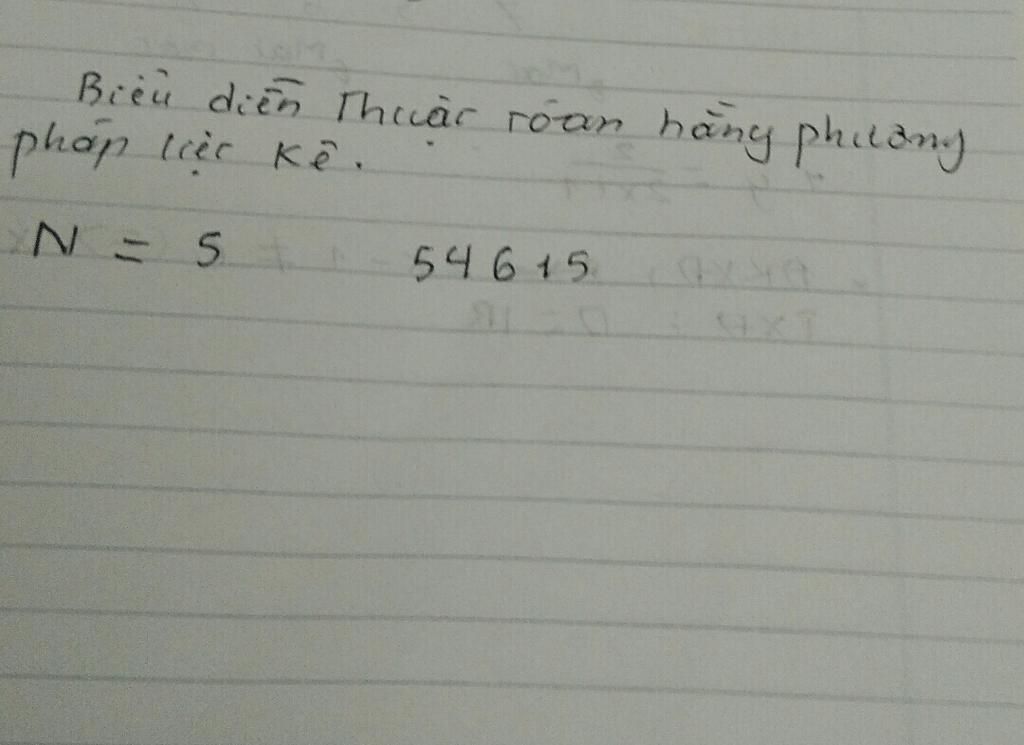 Biểu diễn Thuật toán bằng phương
pháp liệt kê.
N = 5 5 4 6 1 5